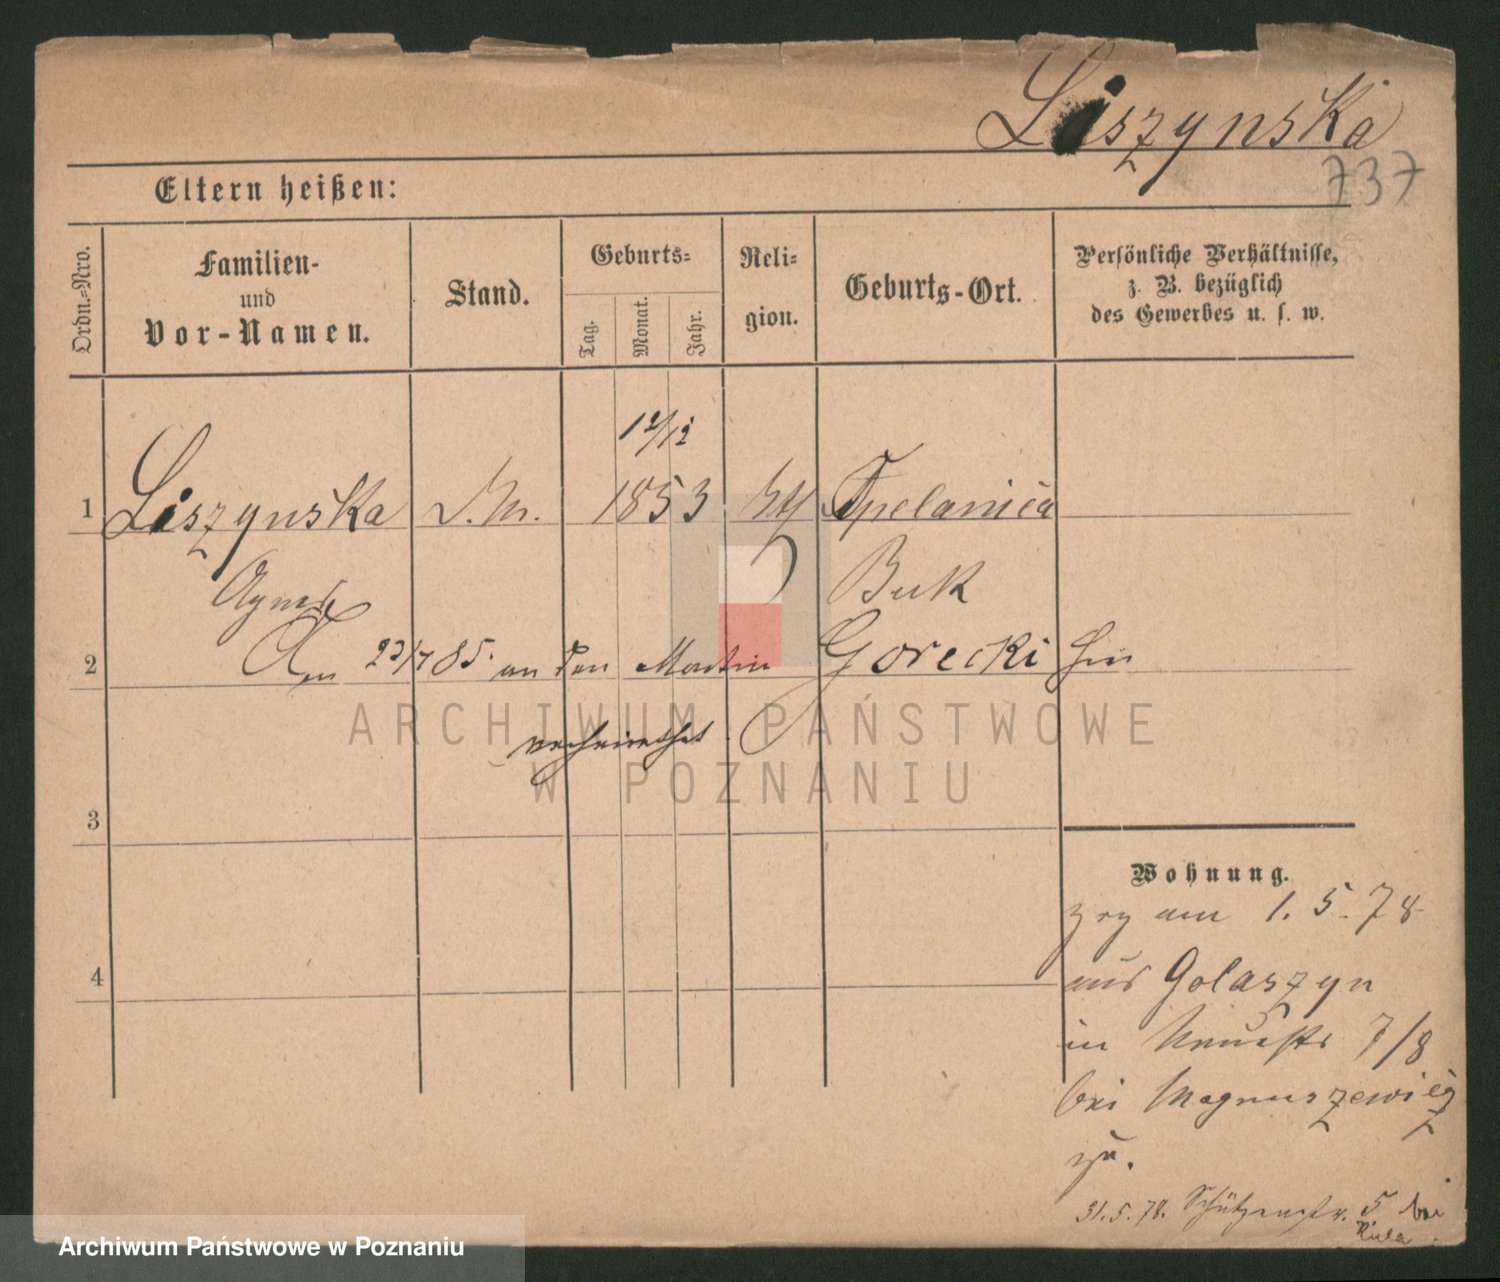 Liszynska
737
Eltern heißen:
Ordn.=Nro.
Familien-
und
Vor-Namen.
Stand.
Geburts=
Tag.
Monat.
Jahr.
Reli=
gion.
Geburts-Ort.
Persönliche Verhältnisse,
z. B. bezüglich
des Gewerbes u. s. w.
12/12
1 Liszynska D. M. 1853 kth
Agnes Buk
2 Am 23/7 85. an den Martin Gorecki hier
verheirathet.
ARCHIWUM PAŃSTWOWE
W POZNANIU
3
4
Wohnung.
zog am 1. 5. 78
aus Golaszyn
in Neuestr 7/8
bei Magnuszewicz
zu.
31.5.78. Schützenstr. 5 bei
Archiwum Państwowe w Poznaniu